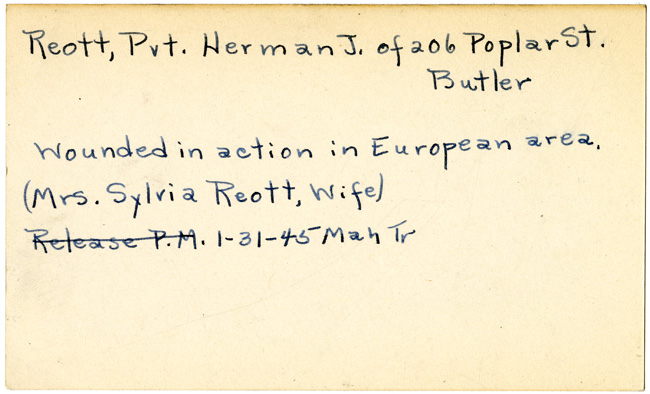 Reott, Pvt. Herman J. of 206 Poplar St.
Butler
Wounded in action in European area.
(Mrs. Sylvia Reott, Wife)
Release P.M. 1-31-45 Mah Tr